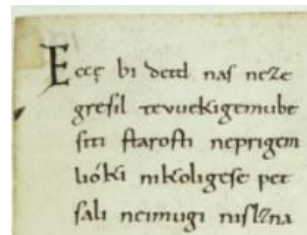 Eccę bi detd naſ neze
greſil tevuekigemube
ſiti ſtaroſti neprigem
lióki nikoligeſe pet
ſali neimugi niſlzna